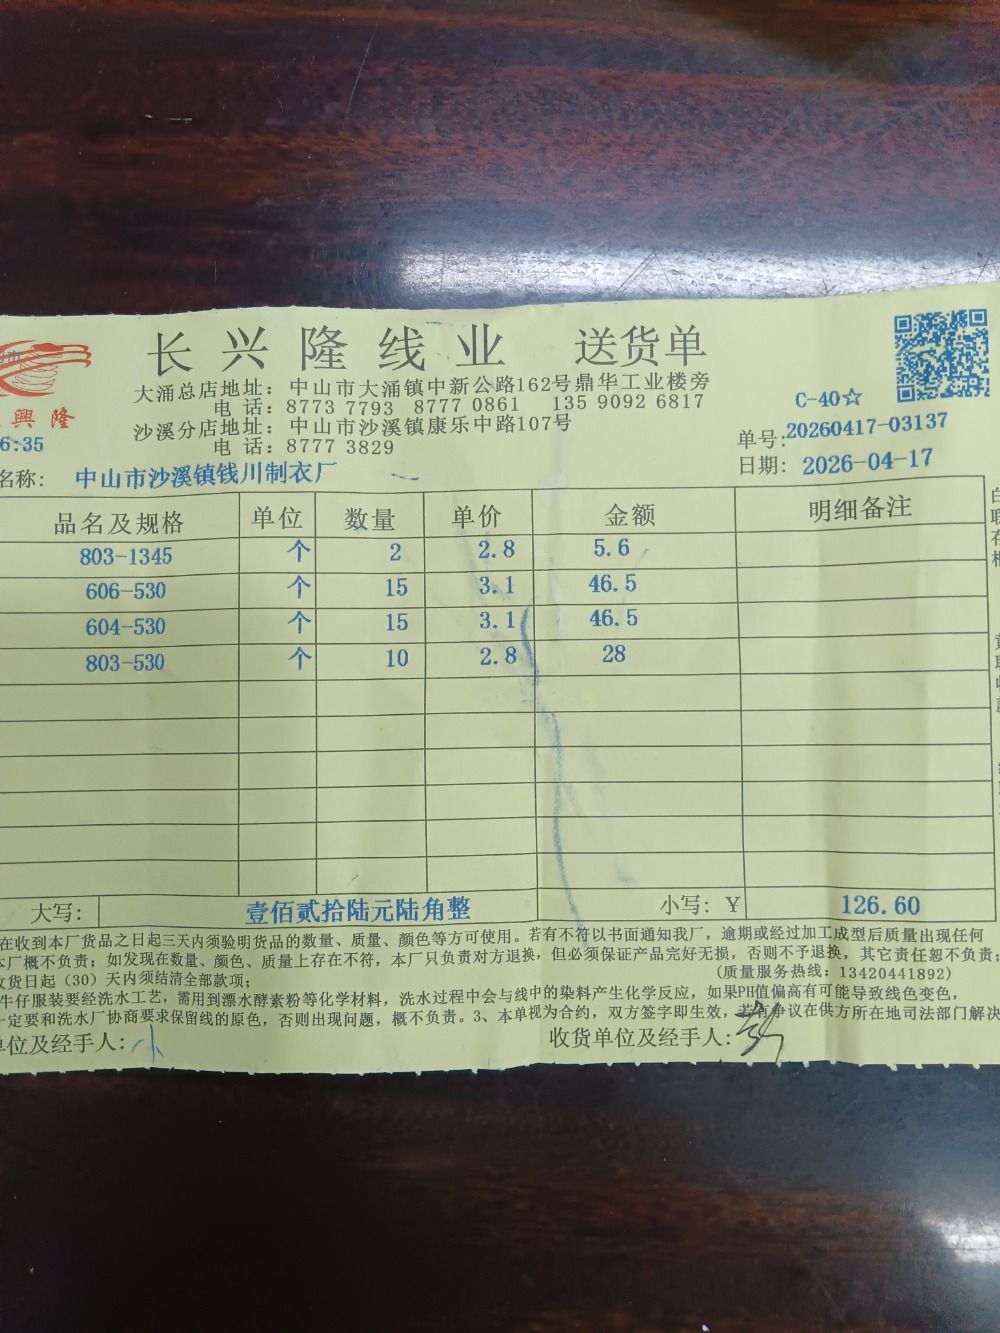 长兴隆线业 送货单
大涌总店地址：中山市大涌镇中新公路162号鼎华工业楼旁
电 话：8773 7793 8777 0861 135 9092 6817
沙溪分店地址：中山市沙溪镇康乐中路107号
电 话：8777 3829
興隆
6:35
C-40☆
单号:20260417-03137
日期：2026-04-17
名称：中山市沙溪镇钱川制衣厂
品名及规格 单位 数量 单价 金额 明细备注
803-1345 个 2 2.8 5.6
606-530 个 15 3.1 46.5
604-530 个 15 3.1 46.5
803-530 个 10 2.8 28
大写： 壹佰贰拾陆元陆角整 小写：¥ 126.60
在收到本厂货品之日起三天内须验明货品的数量、质量、颜色等方可使用。若有不符以书面通知我厂，逾期或经过加工成型后质量出现任何
本厂概不负责；如发现在数量、颜色、质量上存在不符，本厂只负责对方退换，但必须保证产品完好无损，否则不予退换，其它责任恕不负责；
收货日起（30）天内须结清全部款项；
(质量服务热线：13420441892)
牛仔服装要经洗水工艺，需用到漂水酵素粉等化学材料，洗水过程中会与线中的染料产生化学反应，如果PH值偏高有可能导致线色变色，
一定要和洗水厂协商要求保留线的原色，否则出现问题，概不负责。3、本单视为合约，双方签字即生效，若有争议在供方所在地司法部门解决
单位及经手人： 收货单位及经手人：